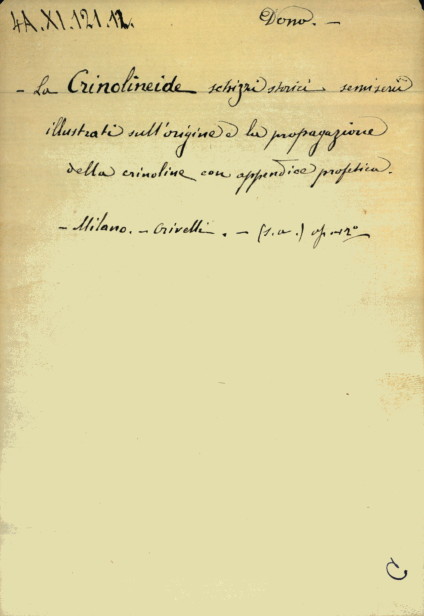 4A.XI.121.12.
Dono. —
– La Crinolineide schizzi storici semiserii
illustrati sull'origine e la propagazione
della crinoline con appendice profetica.
– Milano. – Crivelli. – (s.a.) op. 12°
C